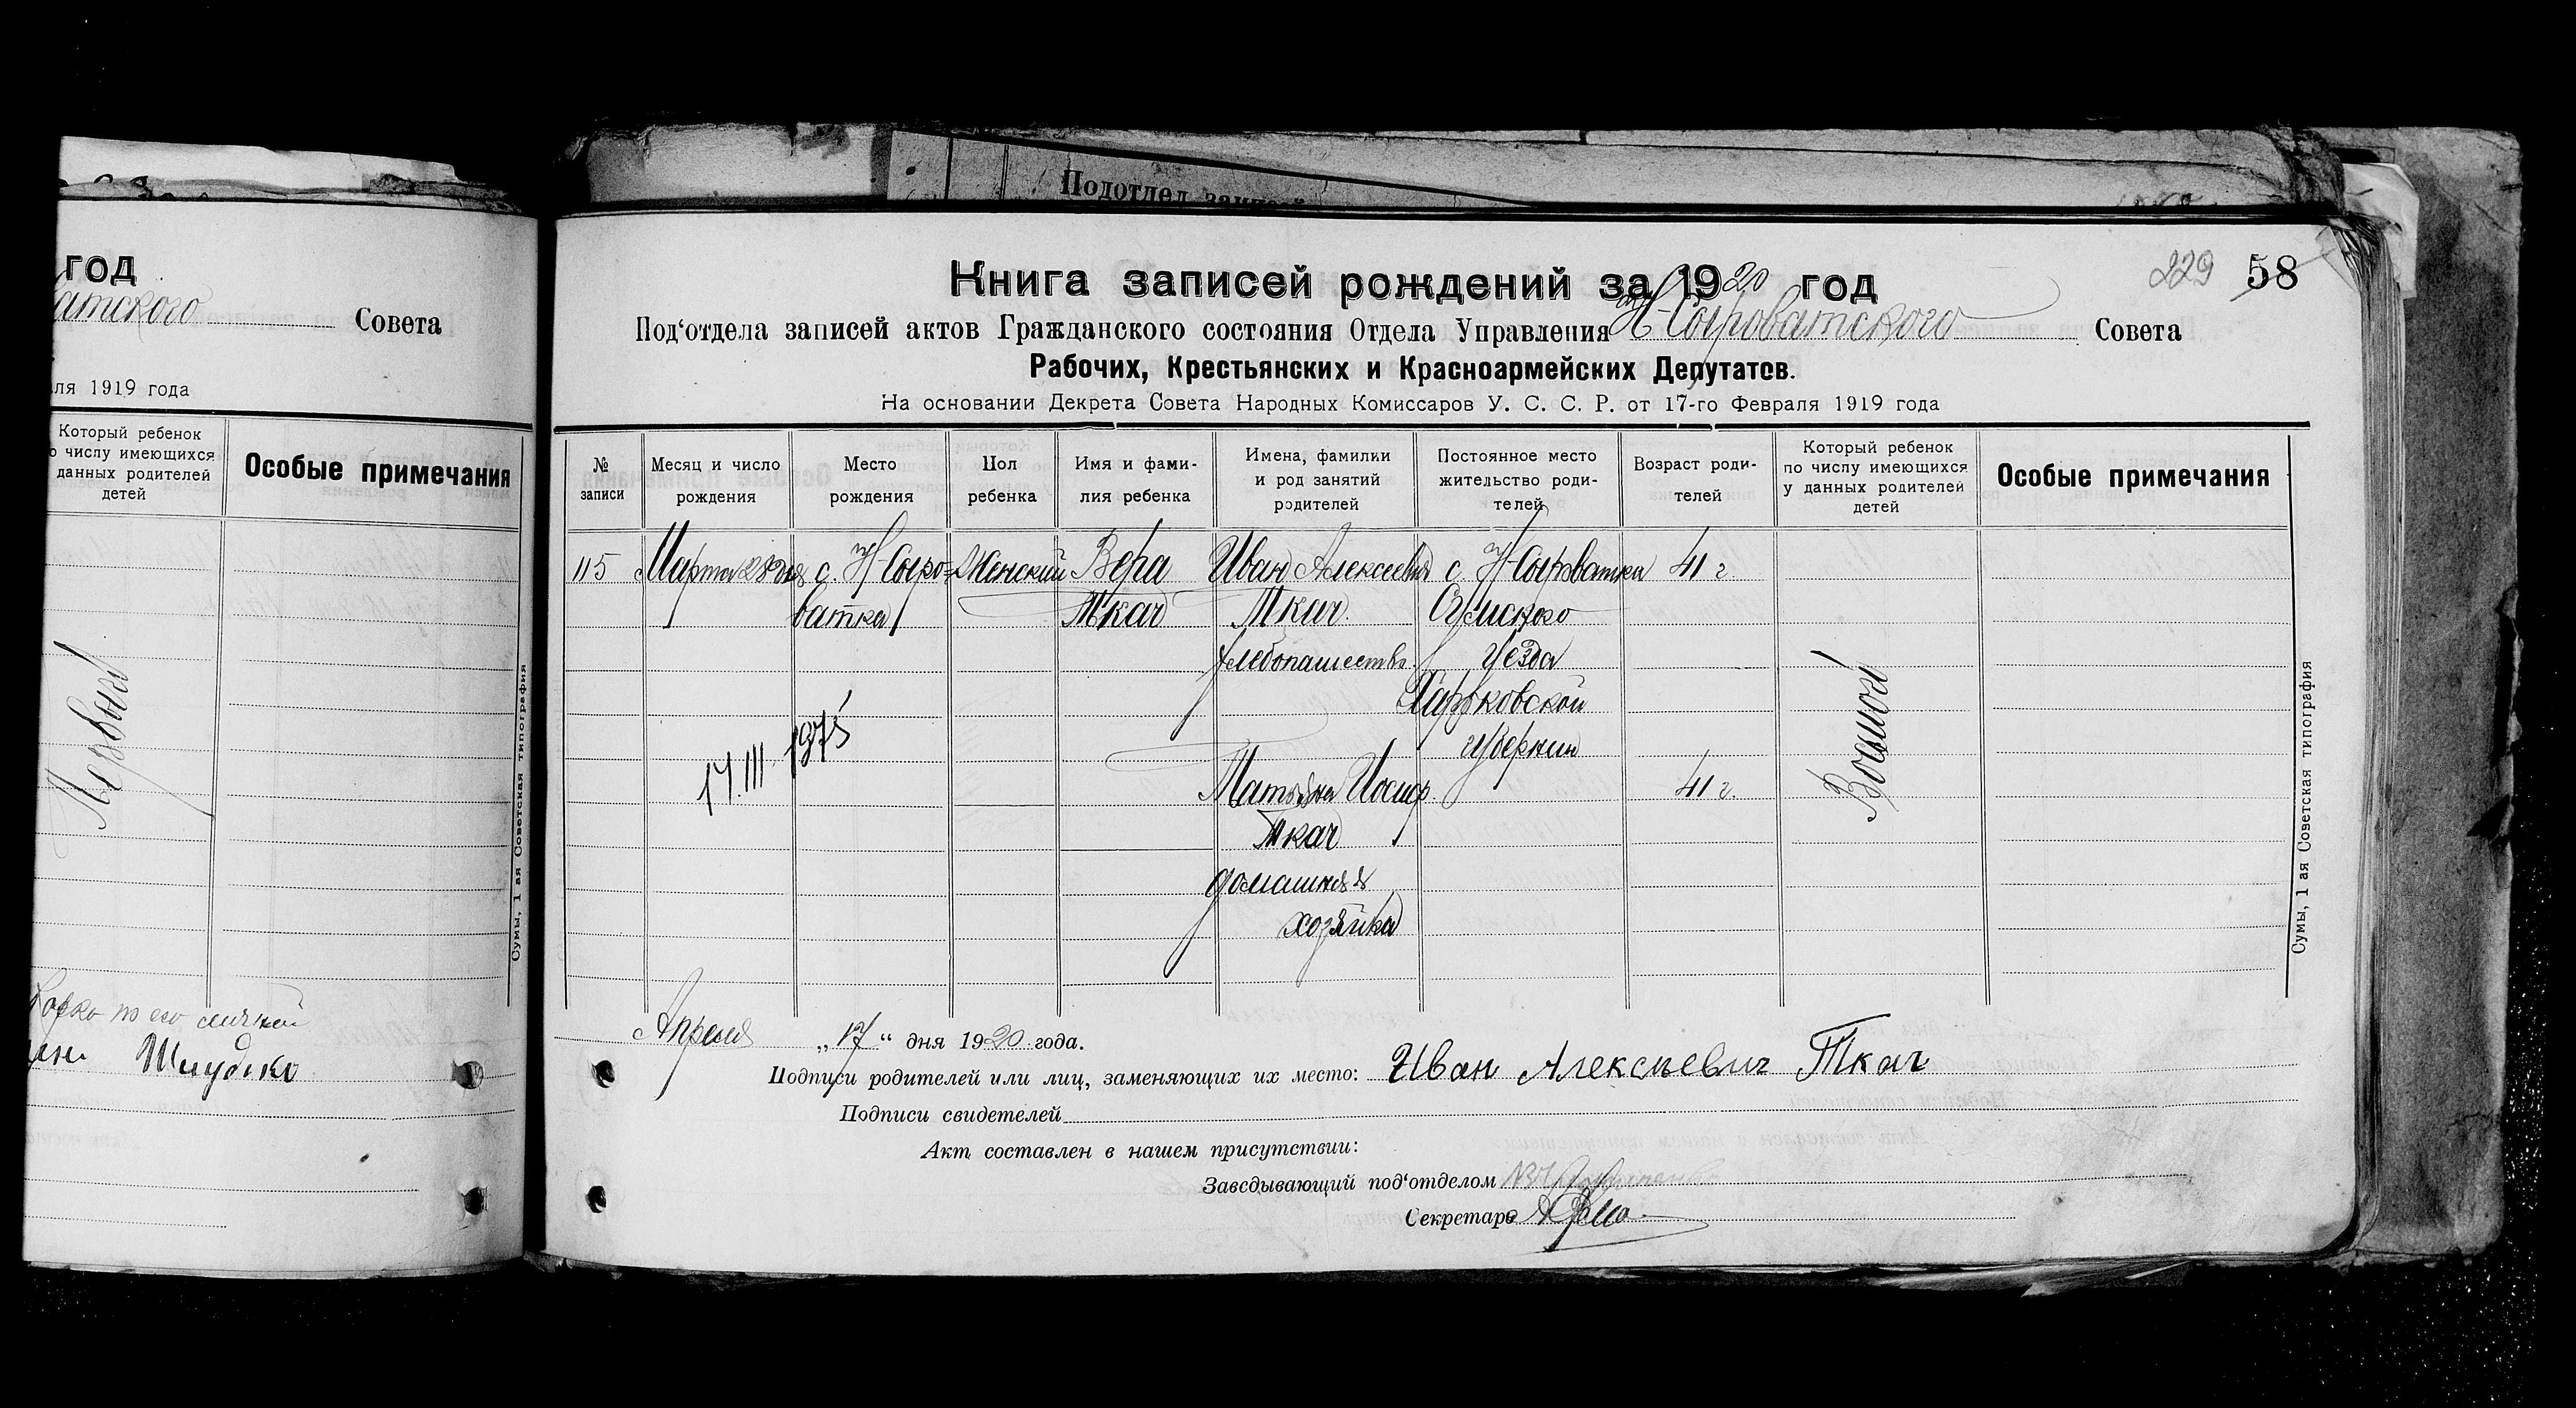 год
Совета
1919 года
Который ребенок
числу имеющихся
данных родителей
детей
Особые примечания
Первый
Сумы, 1 ая Советская типография
по его личной
Подотдел
229 58
Книга записей рождений за 1920 год
Под‘отдела записей актов Гражданского состояния Отдела Управления Н-Сыроватского Совета
Рабочих, Крестьянских и Красноармейских Депутатов.
На основании Декрета Совета Народных Комиссаров У. С. С. Р. от 17-го Февраля 1919 года
№ записи
Месяц и число рождения
Место рождения
Пол ребенка
Имя и фами-
лия ребенка
Имена, фамилии
и род занятий
родителей
Постоянное место
жительство роди-
телей
Возраст роди-
телей
Который ребенок
по числу имеющихся
у данных родителей
детей
Особые примечания
115
Марта 28 дня
с. Н Сыро=
ватка
Женский
Вера
Ткач
Иван Алексеевич
Ткач.
хлебопашество.
Татьяна Иосиф.
Ткач
домашняя
хозяйка
с. Н Сыроватка
Сумского
Уезда
Харьковской
губернии
41 г.
41 г.
Восьмой
17.III 1975
Сумы, 1 ая Советская типография
Апреля „17“ дня 1920 года.
Подписи родителей или лиц, заменяющих их место: Иван Алексъевич Ткач
Подписи свидетелей
Акт составлен в нашем присутствии:
Заведывающий под‘отделом
Секретарь